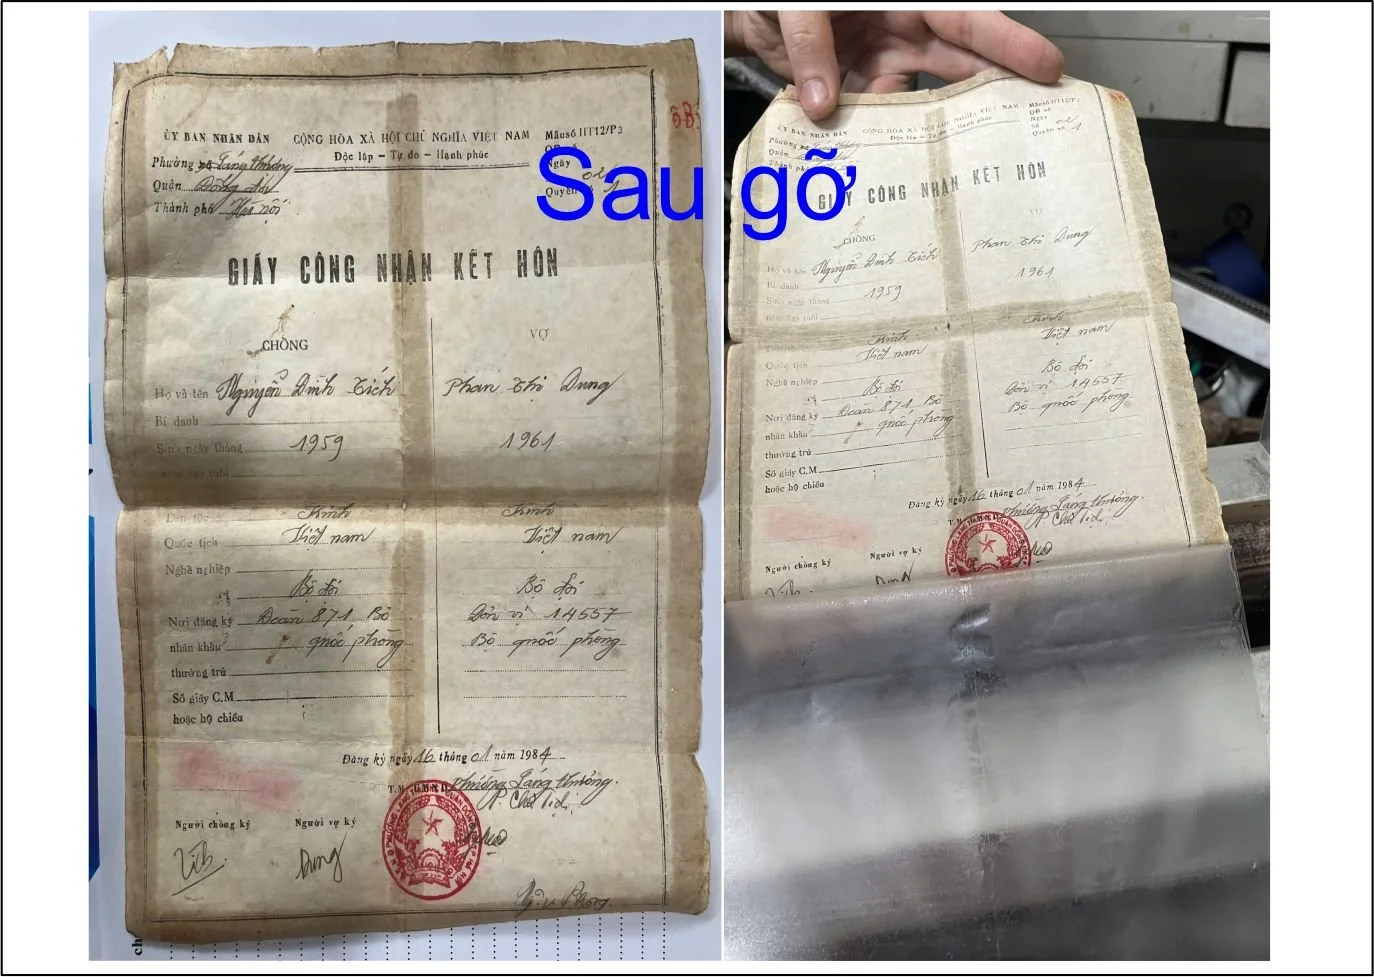 Sau gỡ
ỦY BAN NHÂN DÂN
Phường Láng thượng
Quận Đống đa
Thành phố Hà nội
CỘNG HÒA XÃ HỘI CHỦ NGHĨA VIỆT NAM
Độc lập – Tự do – Hạnh phúc
Mẫu số HT12/P3
QĐ số
Ngày
Quyển số 1
GIẤY CÔNG NHẬN KẾT HÔN
CHỒNG
VỢ
Họ và tên Nguyễn Đình Tích Phan Thị Dung
Bí danh
Sinh ngày tháng 1959 1961
năm hay tuổi
Dân tộc Kinh Kinh
Quốc tịch Việt nam Việt nam
Nghề nghiệp
Bộ đội Bộ đội
Nơi đăng ký Đoàn 871 Bộ Đơn vị 14557
nhân khẩu quốc phòng Bộ quốc phòng
thường trú
Số giấy C.M
hoặc hộ chiếu
Đăng ký ngày 16 tháng 01 năm 1984
T.M. UBND phường Láng thượng.
P. Chủ tịch
Người chồng ký
Người vợ ký
Tích
Dung
ỦY BAN NHÂN DÂN
Phường Láng thượng
Quận
Thành phố
CỘNG HÒA XÃ HỘI CHỦ NGHĨA VIỆT NAM
Độc lập – Tự do – Hạnh phúc
Mẫu số HT12/P3
QĐ số
Ngày
Số
Quyển số 1
GIẤY CÔNG NHẬN KẾT HÔN
CHỒNG
VỢ
Họ và tên Nguyễn Đình Tích Phan Thị Dung
Bí danh
Sinh ngày tháng 1959 1961
năm hay tuổi
Dân tộc Kinh Kinh
Quốc tịch Việt nam Việt nam
Nghề nghiệp
Bộ đội Bộ đội
Nơi đăng ký Đoàn 871 Bộ Đơn vị 14557
nhân khẩu quốc phòng Bộ quốc phòng
thường trú
Số giấy C.M
hoặc hộ chiếu
Đăng ký ngày 16 tháng 01 năm 1984
phường Láng thượng.
P. Chủ tịch
Người chồng ký
Người vợ ký